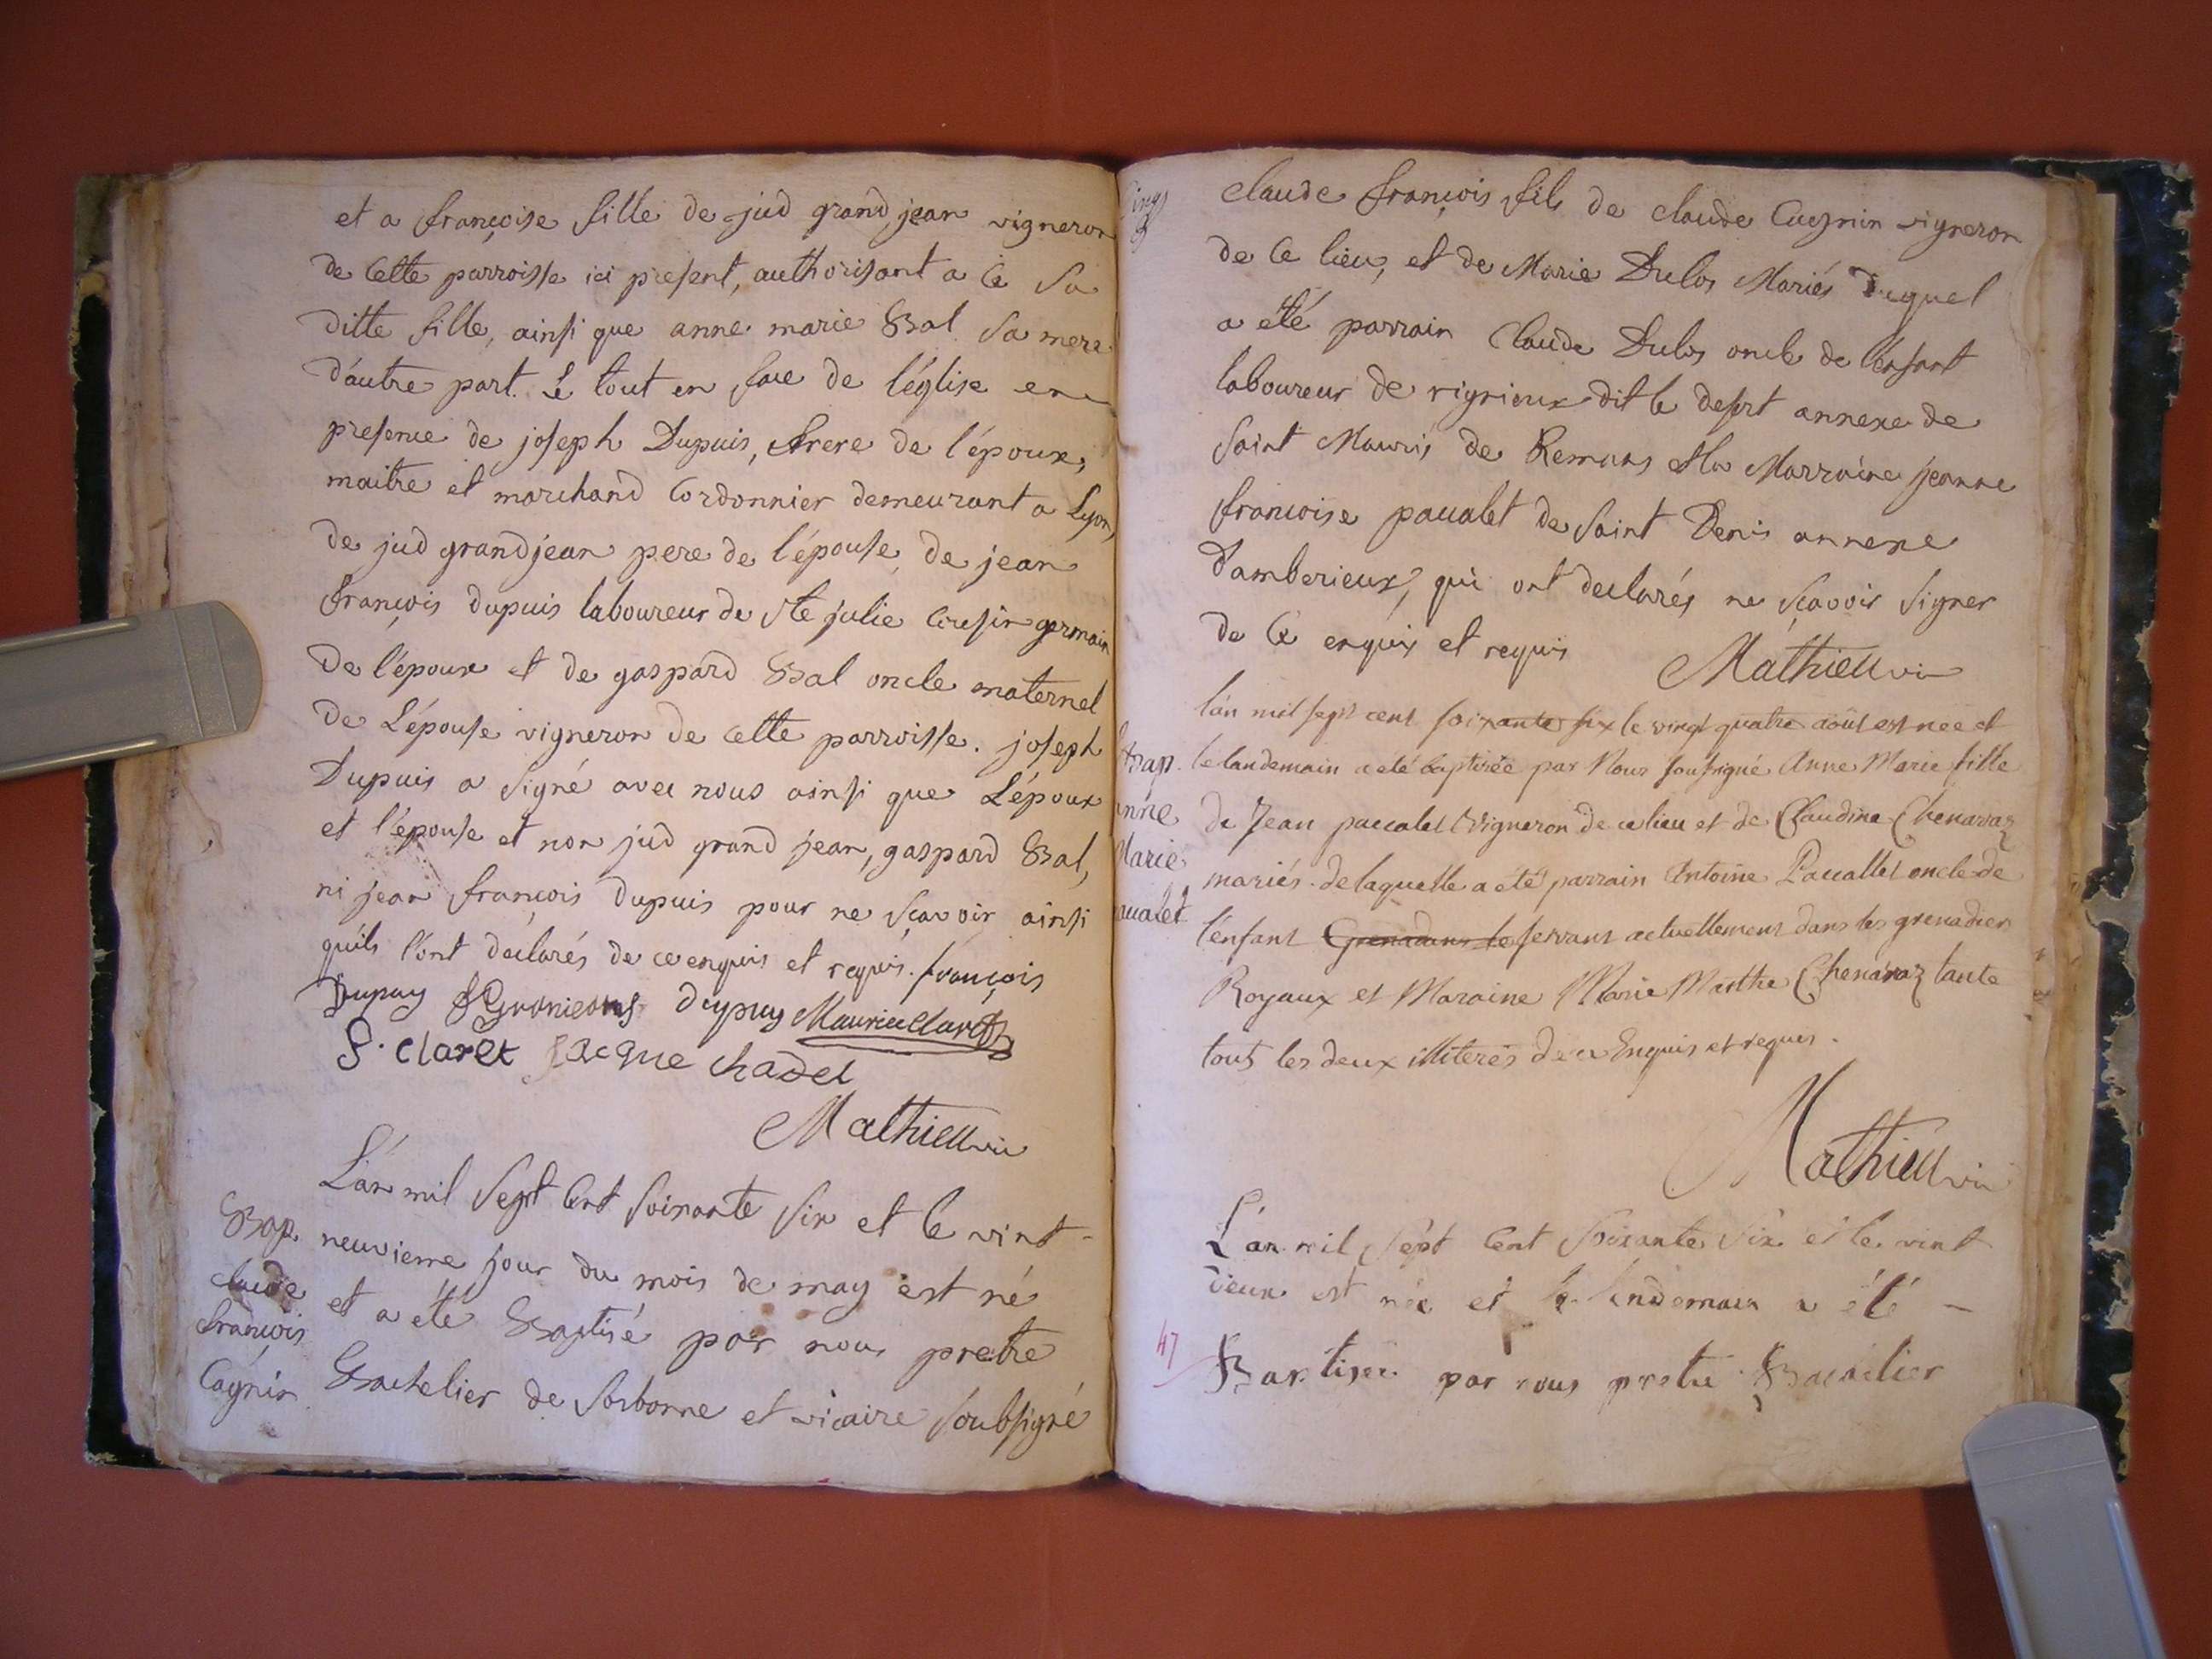 et a françoise fille de jud grand jean vigneron
de cette parroisse ici present, authorisant a ce sa
ditte fille, ainsi que anne marie Bal sa mere
d'autre part. Le tout en face de l'église en
presence de joseph Dupuis, frere de l'époux,
maitre et marchand Cordonnier demeurant a Lyon,
de jud grandjean pere de l'épouse, de jean
françois dupuis laboureur de ste julie cousin germain
de l'époux et de gaspard Bal oncle maternel
de L'épouse vigneron de cette parroisse. joseph
Dupuis a signé avec nous ainsi que L'époux
et l'épouse et non jud grand jean, gaspard Bal,
ni jean françois dupuis pour ne sçavoir ainsi
qu'ils l'ont déclarés de ce enquis et requis. françois
Dupuy dupuy Maurice Claret
Claret jacque chadel
Mathieu vic
L'an mil sept cent soixante six et le vint-
Bap. neuvieme jour du mois de may est né
claude et a été Baptisé par nous pretre
françois Bachelier de sorbonne et vicaire soubsigné
Cagnin
claude françois fils de claude Cagnin vigneron
de ce lieu, et de Marie Dulos Mariés duquel
a été parrain Claude Dulos oncle de l'enfant
laboureur de rignieux dit le desert annexe de
saint Mauris de Remans et la Marraine jeanne
francoise paualet de saint Denis annexe
d'amberieux, qui ont declarés ne sçavoir signer
de ce enquis et requis Mathieu vic
l'an mil sept cent soixante six le vingt quatre août est née et
Bap. le landemain a eté baptisée par Nous sousigné Anne Marie fille
anne de Jean paualet Vigneron de ce lieu et de Claudine Chenavaz
Marie mariés. de laquelle a été parrain Antoine Pauallet oncle de
paualet l'enfant Grenadans le servant actuellement dans les grenadiers
Royaux et Maraine Marie Marthe Chenavaz tante
touts les deux illiterés de ce Enquis et requis.
Mathieu vic
L'an mil sept cent soixante six et le vint
deux est née et le lendemain a été -
47 Baptisée par nous pretre Bacailier